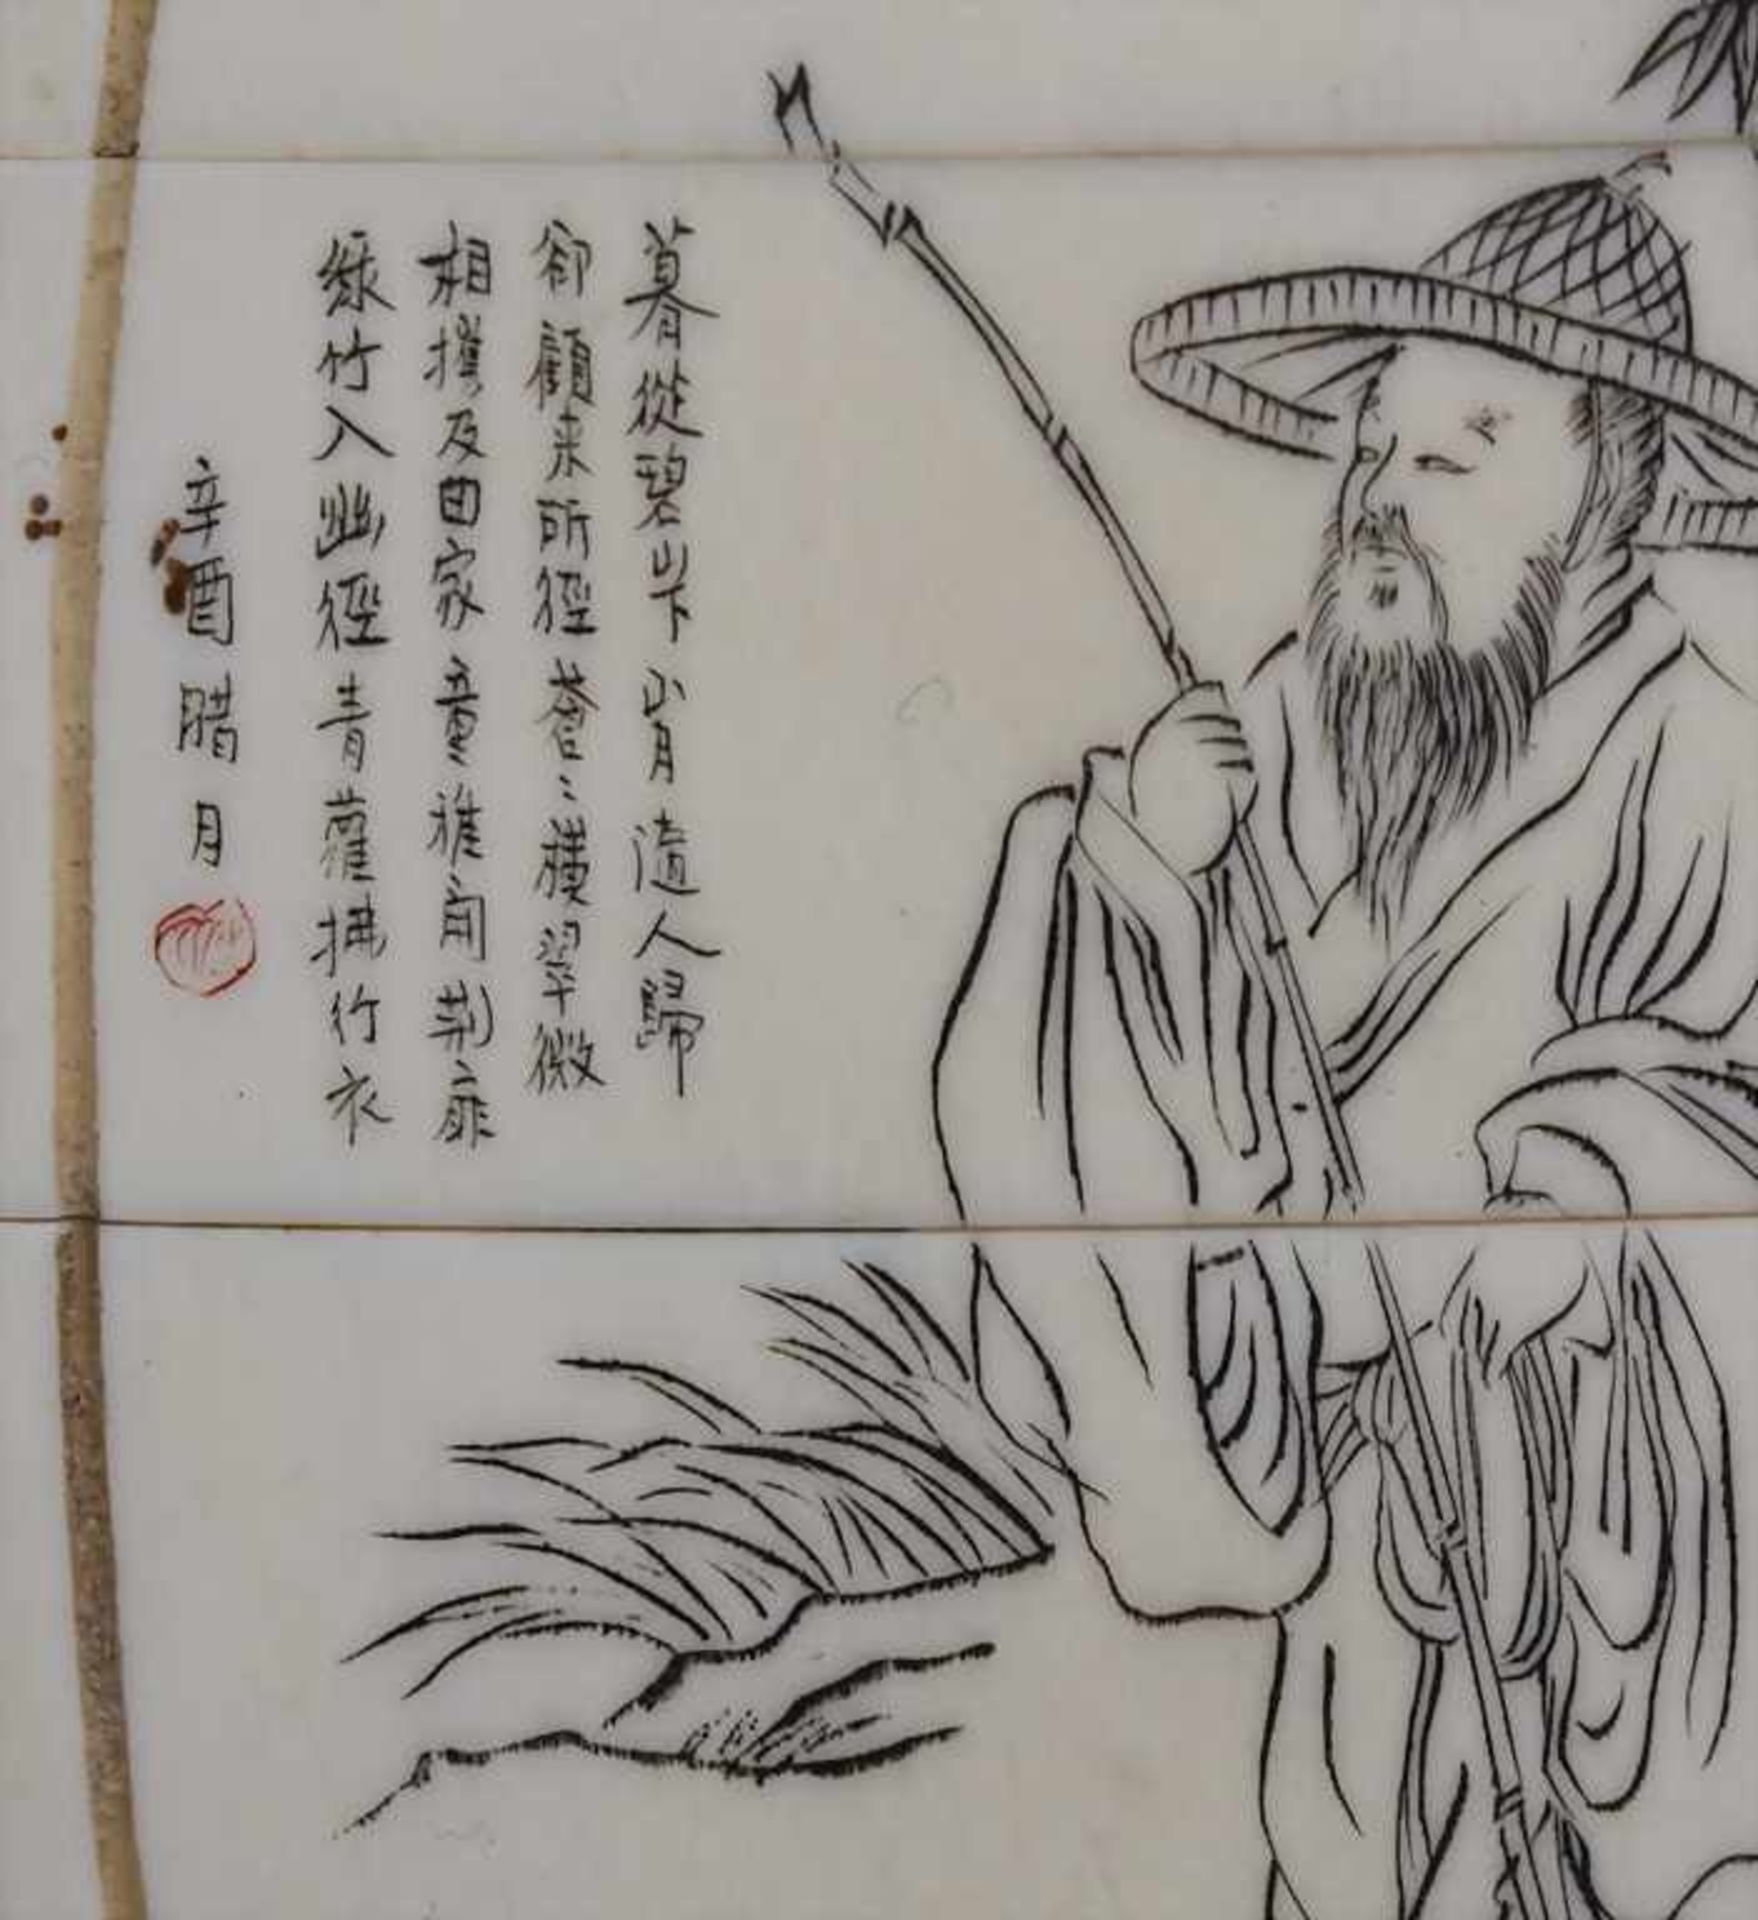 暮從碧山下山月隨人歸
卻顧來所徑蒼〻橫翠微
相攜及田家童稚開荊扉
綠竹入幽徑青蘿拂行衣
辛酉腊月